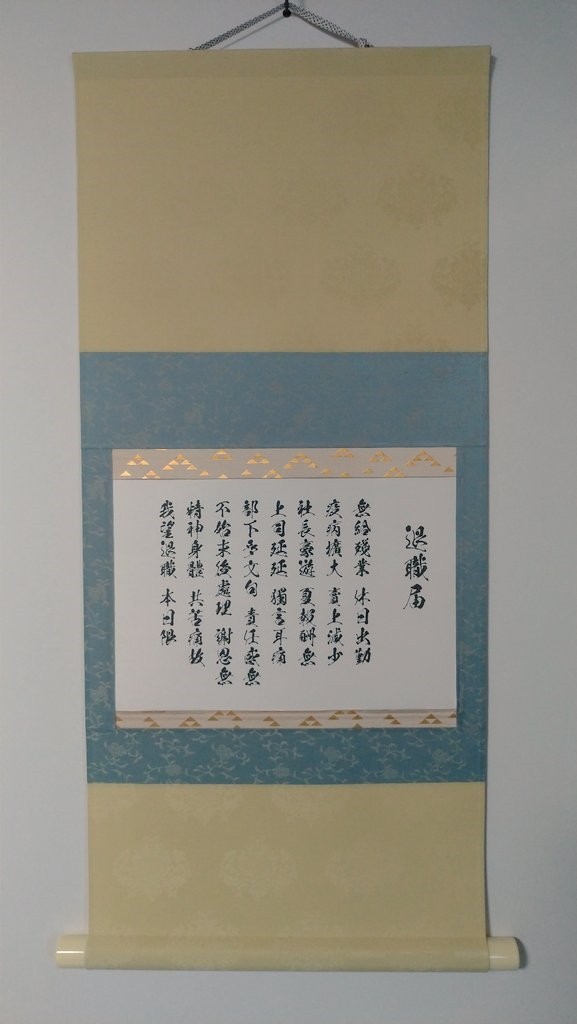 退職届
無給殘業 休日出勤
疫病擴大 賣上減少
社長豪遊 夏報酬無
上司延延 獨言耳痛
部下多文句 責任感無
不始末後處理 謝恩無
精神身體 共苦痛故
我望退職 本日限